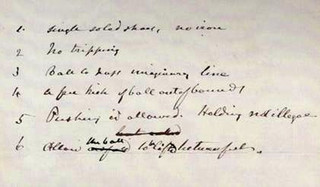 1 single soled shoes, no iron
2 No tripping
3 Ball to pass imaginary line
4 A free kick if ball out of bounds
5 Pushing is allowed. Holding not illegal
6 Allow the ball to be lifted between fields.